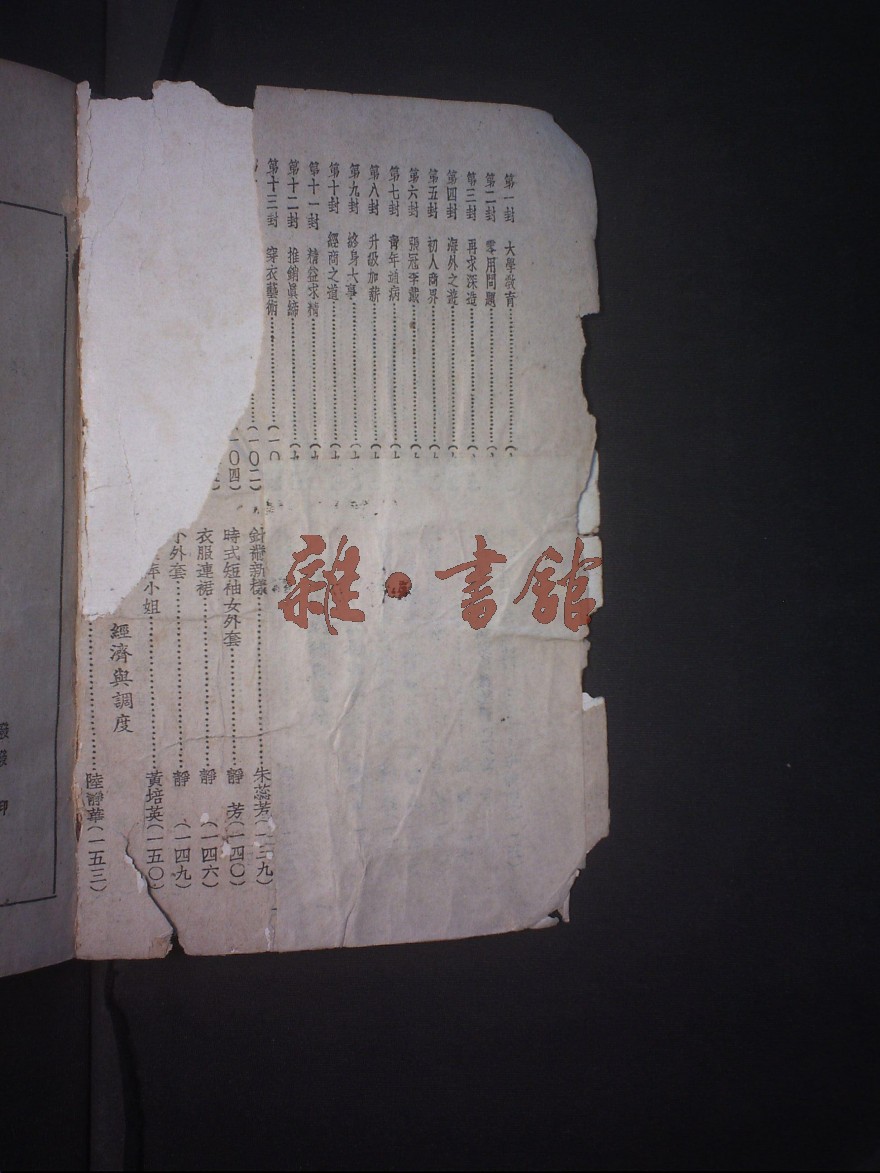 第一封 大學教育
第二封 零用問題
第三封 再求深造
第四封 海外之遊
第五封 初入商界
第六封 張冠李戴
第七封 青年通病
第八封 升級加薪
第九封 終身大事
第十封 經商之道
第十一封 精益求精
第十二封 推銷眞締
第十三封 穿衣藝術(一〇
(一〇二)
一〇四)
針織新樣 朱蕊芳(一三九)
時式短袖女外套 靜芳(一四〇)
衣服連裙 靜(一四六)
小外套 靜(一四九)
小姐 黃培英(一五〇)
經濟與調度
陸靜華(一五三)
雜·書館